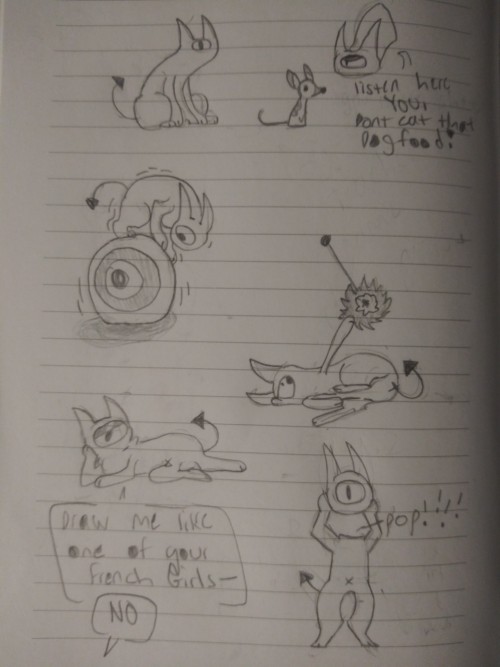 listen here
Your
Dont eat that
Dog food!
Draw me like
one of your
French Girls—
NO
pop!!!!